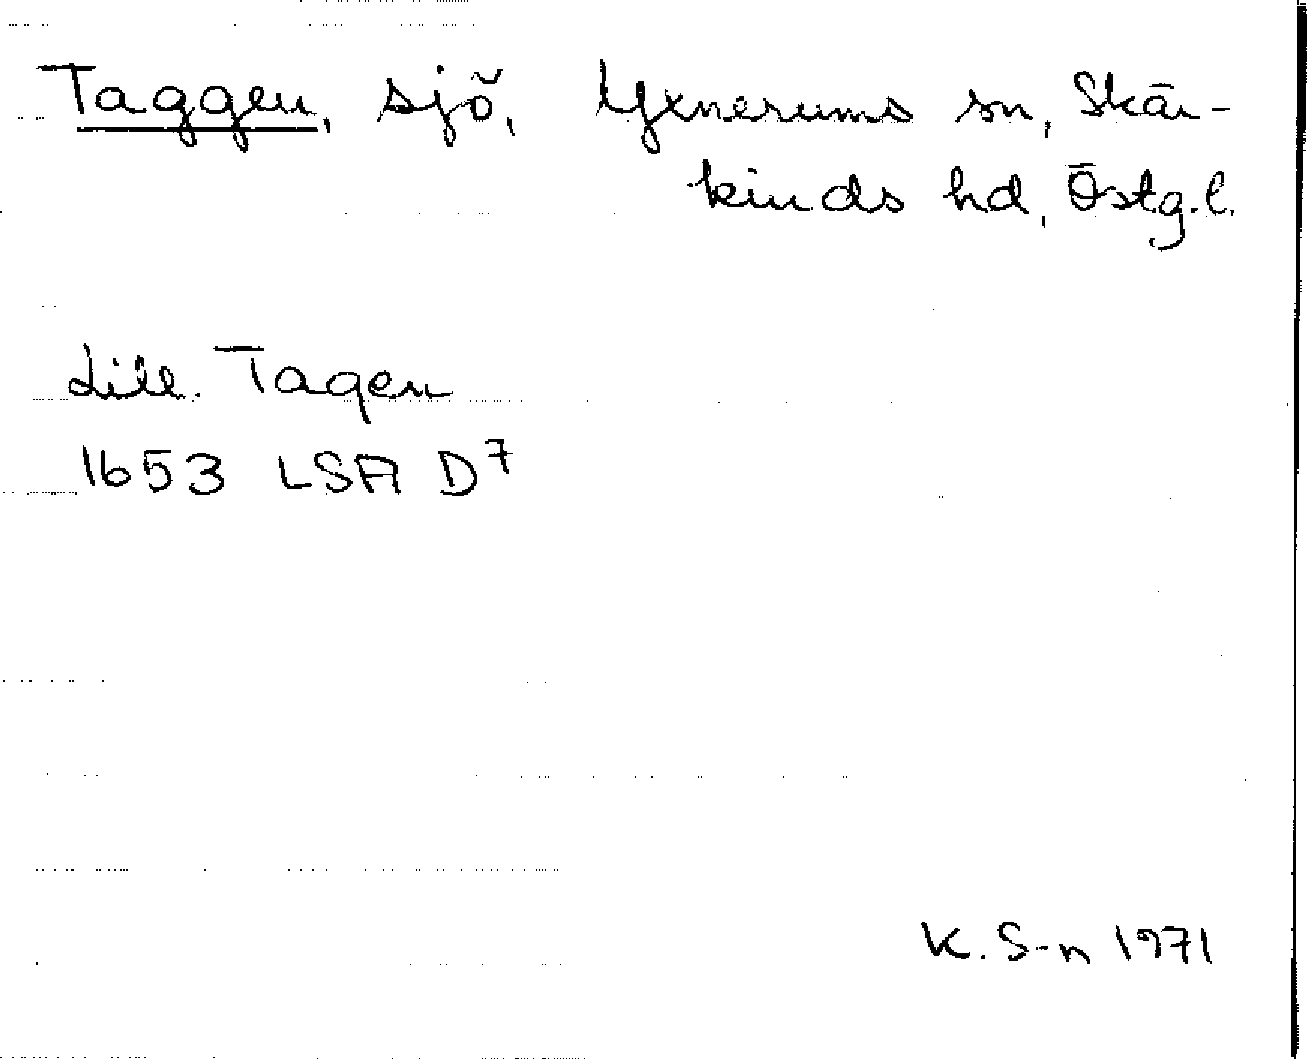 Taggen, sjö, Yxnerums sn, Skär-
kinds hd, Östg.l.
Lill. Tagen
1653 LSA D7
K. S-n 1971